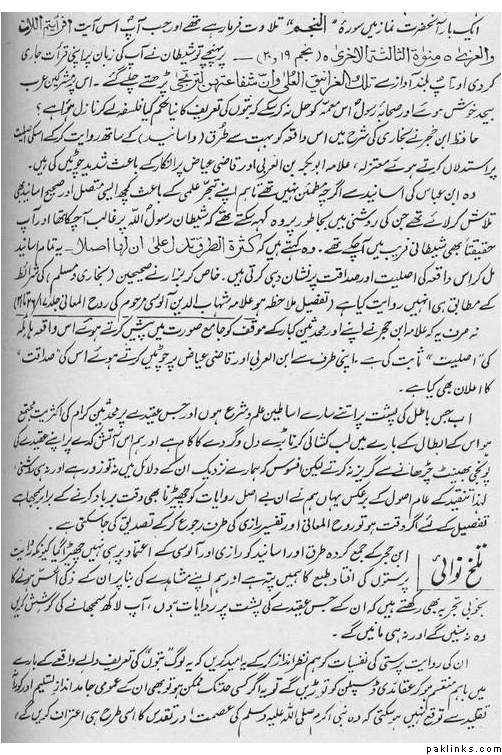 ایک بار آنحضرت نماز میں سورۂ "النجم" تلاوت فرما رہے تھے اور جب آپ اس آیت افرأیتم اللات
والعزیٰ ہ ومنوٰۃ الثالثۃ الاخریٰ ہ (نجم ۱۹، ۲۰) — پہنچے تو شیطان نے آپ کی زبان پر اپنی قرأت جاری
کر دی اور آپ بلند آواز سے تلک الغرانیق العلیٰ وان شفاعتہن لترتجیٰ پڑھتے چلے گئے۔ اس پر مشرکین عرب
بیحد خوش ہوئے اور صحابہ رسول اس معمہ کو حل نہ کر سکے کہ بتوں کی تعریف کا نیا حکم کیا فلسفہ لے کر نازل ہوا ہے؟
حافظ ابن حجر نے بخاری کی شرح میں اس واقعہ کو بہت سے طرق (واسانید) کے ساتھ روایت کر کے اسکی اصلیت
پر استدلال کرتے ہوئے معتزلہ، علامہ ابوبکر بن العربی اور قاضی عیاض پر انکار کے باعث شدید چوٹیں کی ہیں۔
وہ ابن عباس کی اسانید سے اگرچہ مطمئن نہیں تھے تاہم اپنے تبحر علمی کے باعث کچھ ایسی متصل اور صحیح اسانید بھی
تلاش کر لائے تھے جن کی روشنی میں بجا طور پر وہ کہہ سکتے تھے کہ شیطان رسول اللہ پر غالب آ چکا تھا اور آپ
حقیقتاً بھی شیطانی فریب میں آ چکے تھے۔ وہ کہتے ہیں کہ کثرۃ الطرق تدل علیٰ ان لہا اصلا۔ یہ تمام اسانید
مل کر اس واقعہ کی اصلیت اور صداقت پر نشان دی کرتی ہیں۔ خاص کر بزار نے صحیحین (بخاری و مسلم) کی شرائط
کے مطابق ہی انہیں روایت کیا ہے (تفصیل ملاحظہ ہو علامہ شہاب الدین آلوسی مرحوم کی روح المعانی جلد
نہ صرف یہ کہ علامہ ابن حجر نے اپنے اور محدثین کبار کے موقف کو جامع صورت میں پیش کرتے ہوئے اس واقعہ ہائلہ
کی "اصلیت" ثابت کی ہے۔ اپنی طرف سے ابن العربی اور قاضی عیاض پر چوٹیں کرتے ہوئے اس کی "صداقت"
کا اعلان بھی کیا ہے۔
اب جس باطل کی پشت پر اتنے سارے اساطین علم و شرع ہوں اور جس عقیدے پر محدثین کرام کی اکثریت مجتمع
ہو اس کے ابطال کے بارے میں لب کشائی کرنا بڑے دل و گردے کا کام ہے اور ہم اس آتش کدے پر اپنے عقیدے کی
پونجی بھینٹ چڑھانے سے گریز نہ کرتے لیکن افسوس کہ ہمارے نزدیک ان کے دلائل میں نہ تو زور ہے اور نہ ہی روشنی،
لہٰذا تنقید کے عام اصول کے برعکس یہاں ہم نے ان بے اصل روایات کو چھیڑنا بھی وقت برباد کرنے کے برابر سمجھا ہے
تفصیل کے لئے اگر وقت ہو تو روح المعانی اور تفسیر رازی کی طرف رجوع کر کے تصدیق کی جا سکتی ہے۔
تلخ نوائی
ابن حجر کے جمع کردہ طرق اور اسانید کو رازی اور آلوسی کے اعتماد پر ہی نہیں چھیڑا گیا کیونکہ روایت
پرستوں کی افتاد طبع کا ہمیں پتہ ہے اور ہم اپنے مشاہدے کی بنا پر ان کے ہونے کا
بخوبی تجربہ بھی رکھتے ہیں کہ ان کے جس عقیدے کی پشت پر روایات ہوں، آپ لاکھ سمجھانے کی کوشش کریں
وہ نہ سنیں گے اور نہ ہی مانیں گے۔
ان کی روایت پرستی کی نفسیات کو ہم نظر انداز کر کے یہ امید کریں کہ یہ لوگ "بتوں" کی تعریف والے واقعہ کے بارے
میں باہم متفق ہو کر عقائدی ڈسپلن کو توڑیں گے تو یہ اگر کسی حد تک ممکن ہو تو بھی ان کے عمومی جامد انداز تسلیم اور کورانہ
تقلید سے توقع نہیں ہو سکتی کہ وہ نبی اکرم صلی اللہ علیہ وسلم کی عصمت و تقدس کا اسی طرح ہی اعتراف کریں گے،
paklinks.com